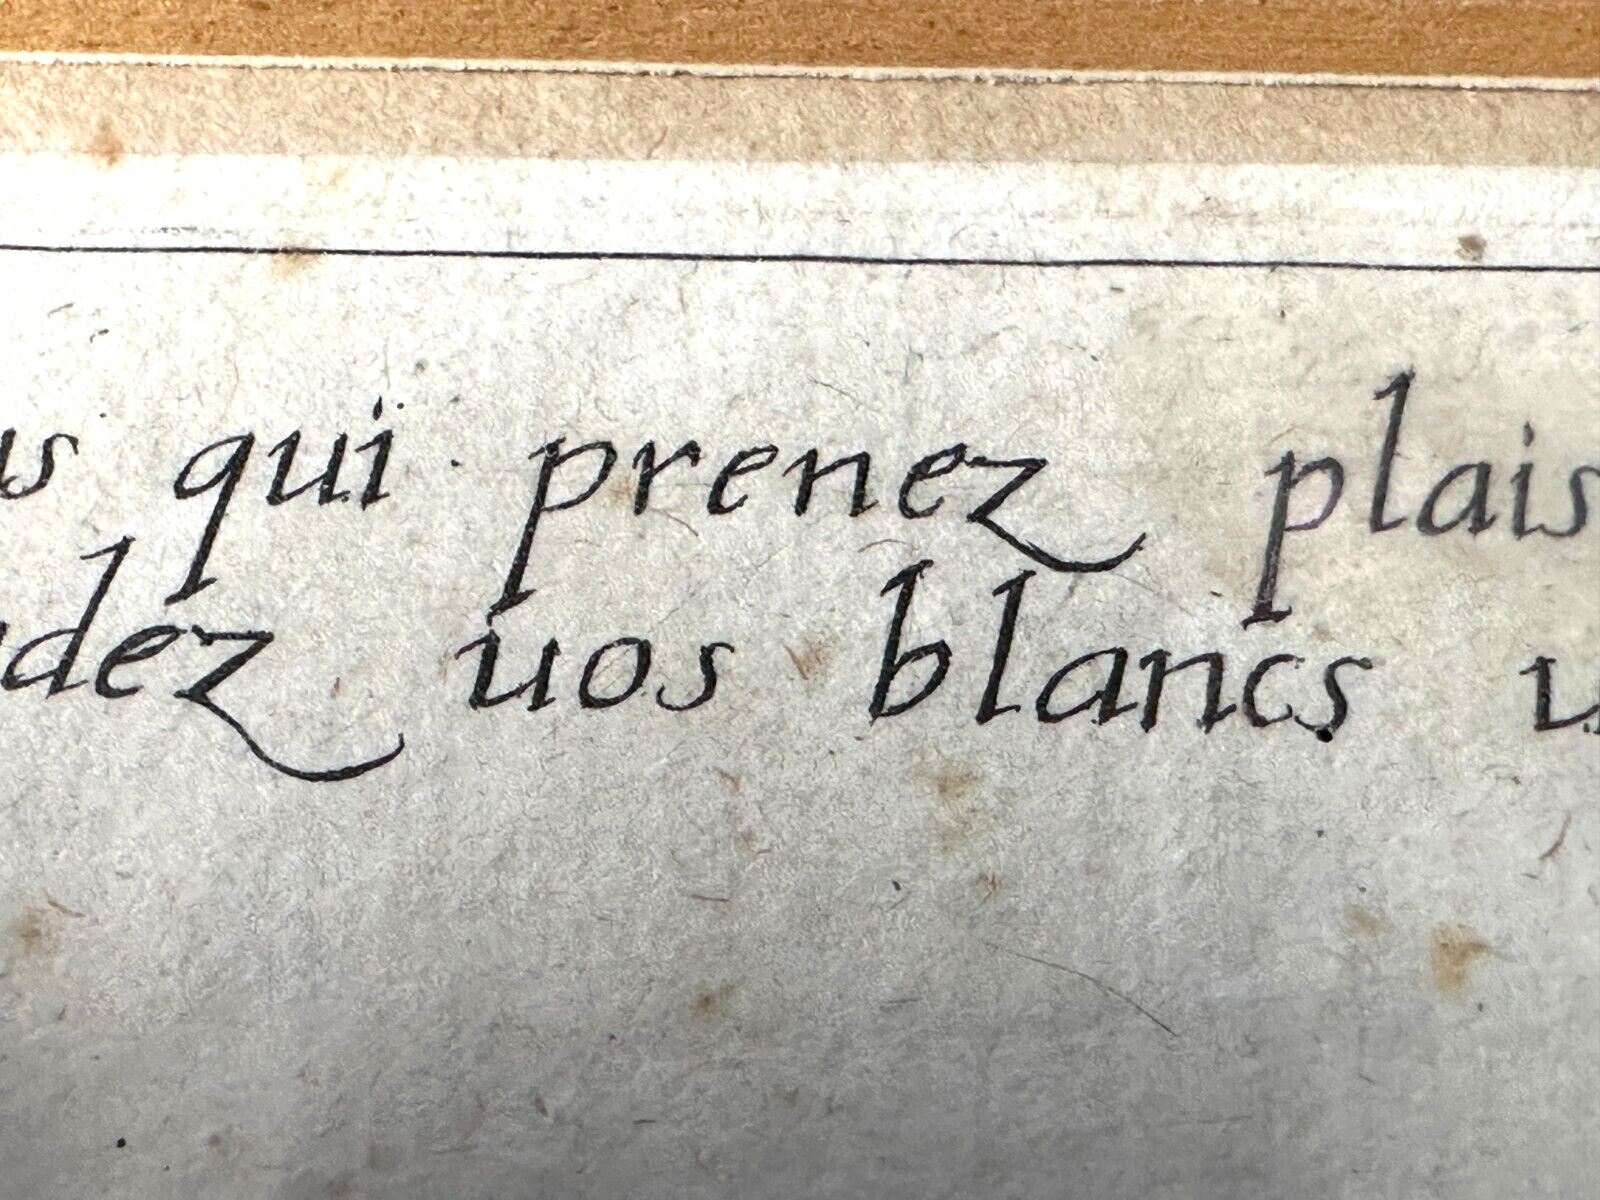 us qui prenez plais
dez uos blancs u